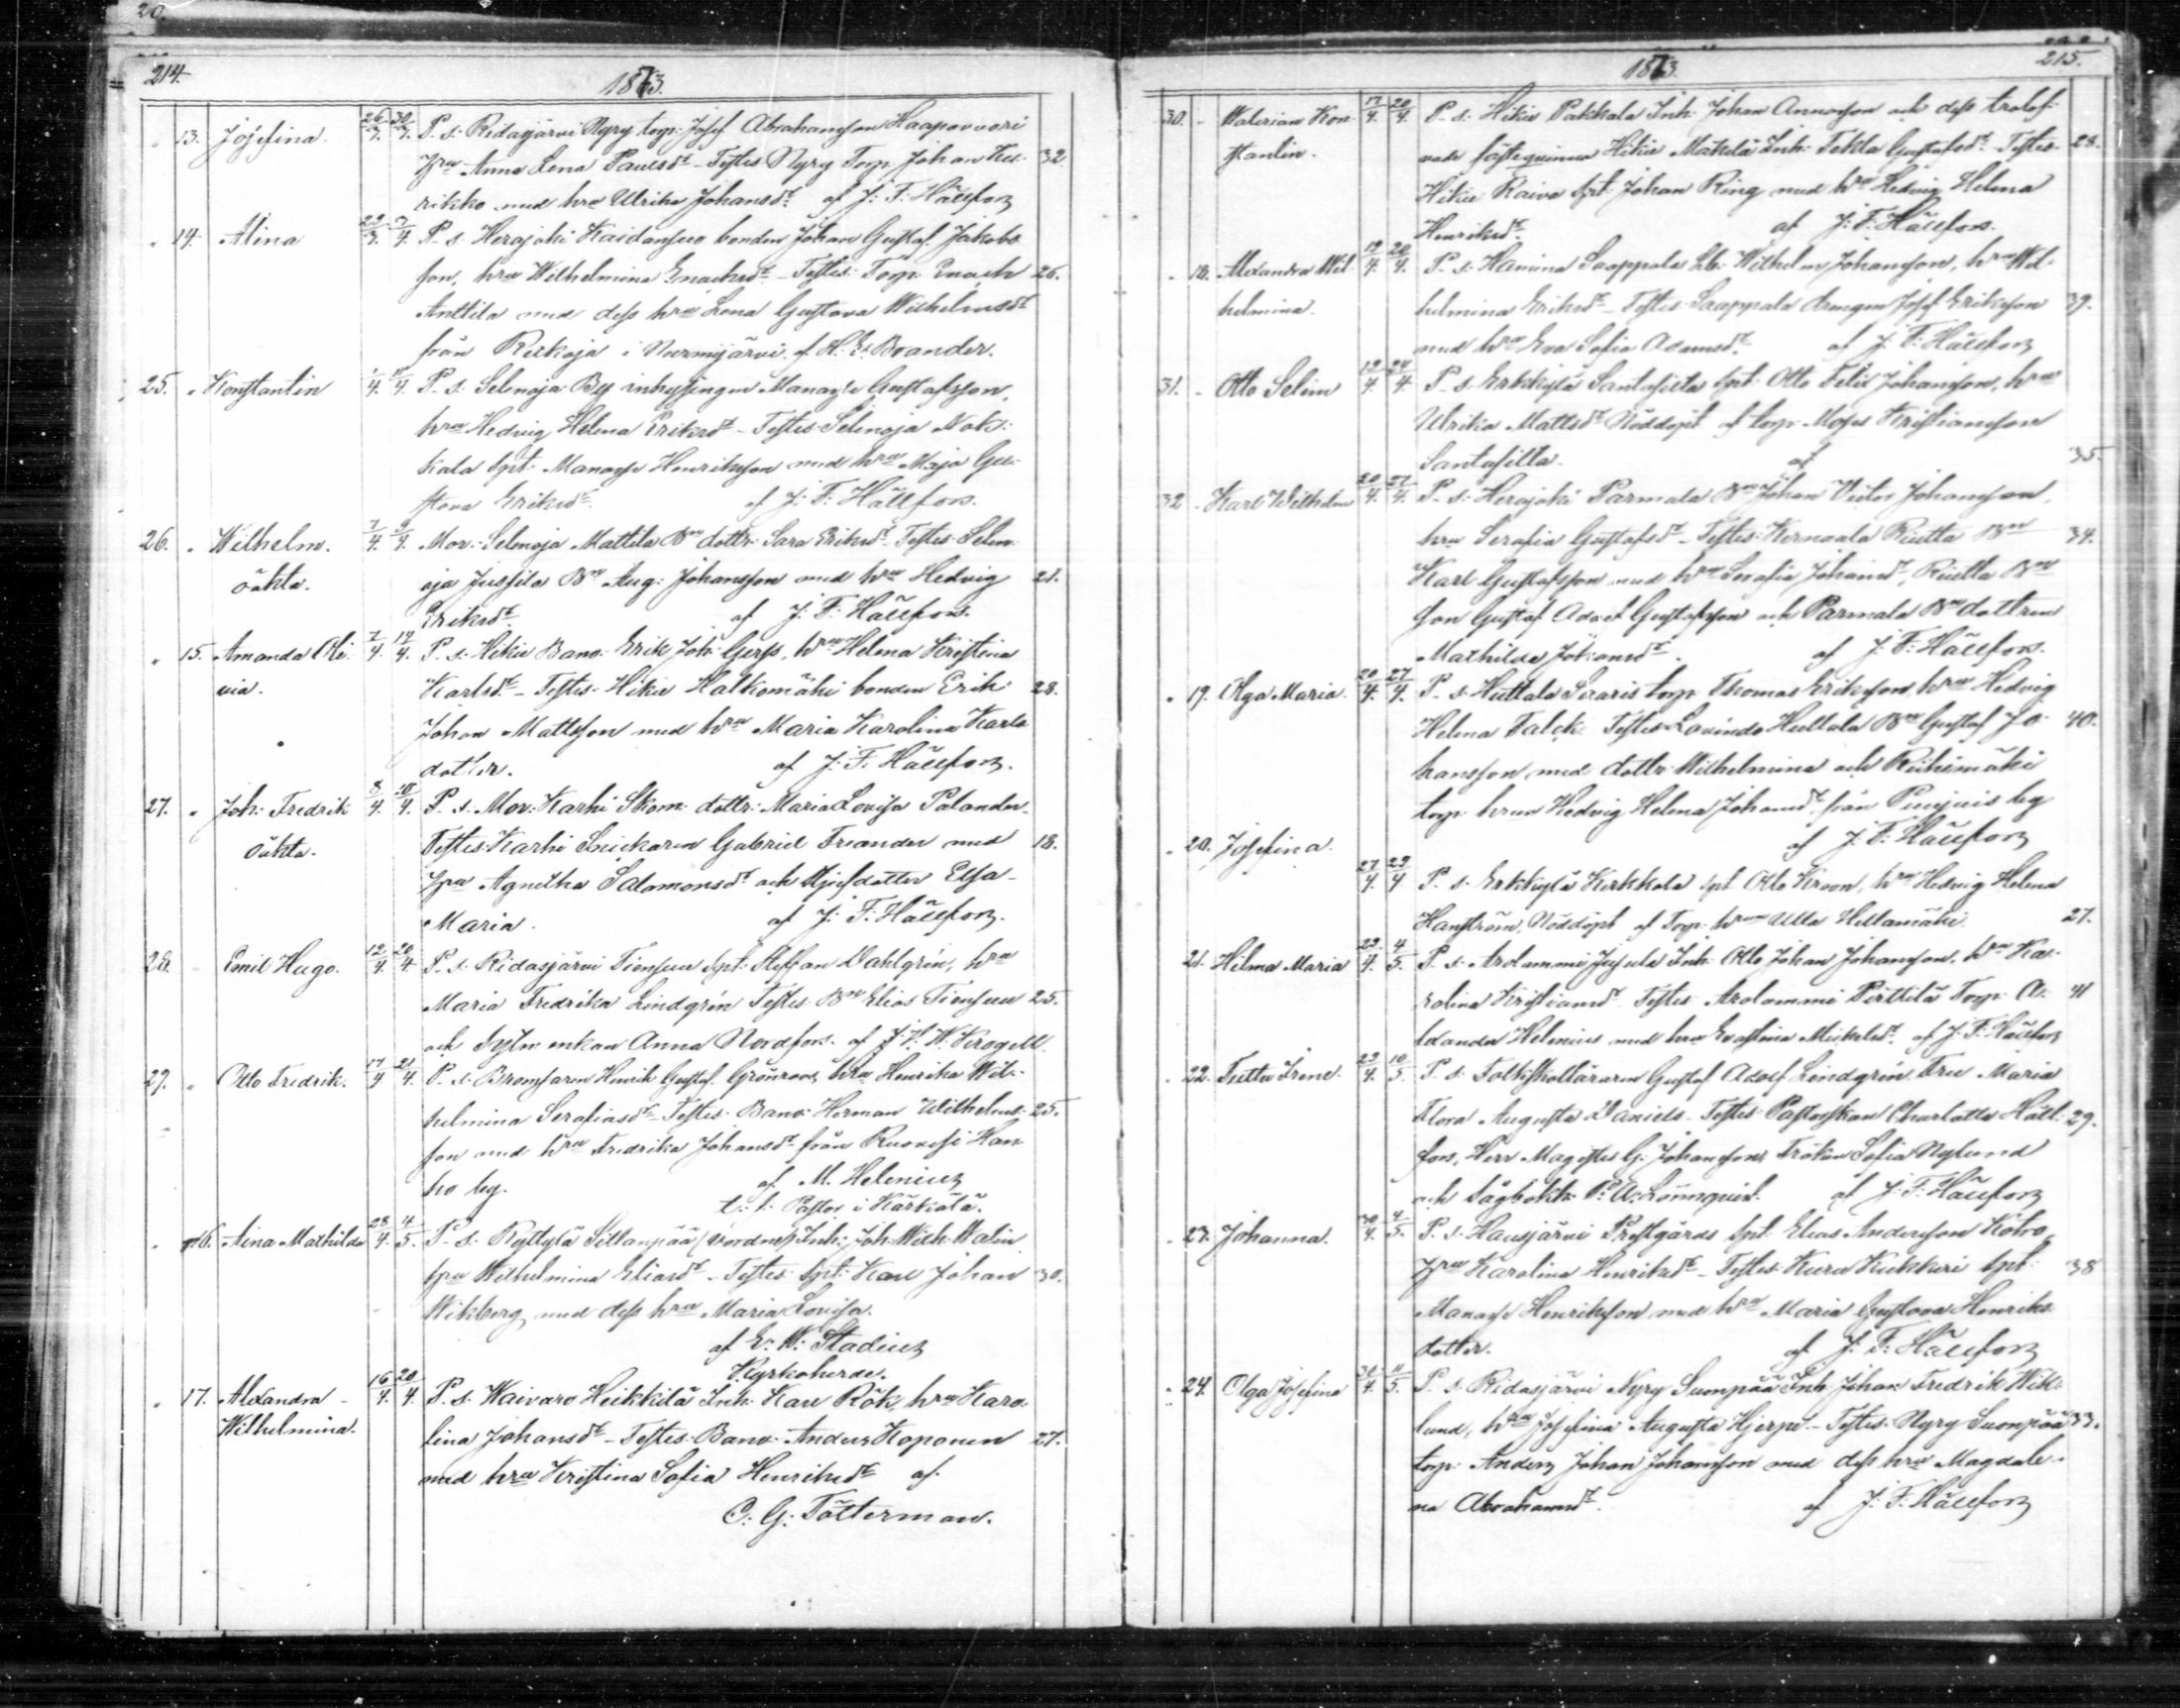 20.
214.
1873.
" 13. Josefina. 26/3. 30/3. P. s. Ridasjärvi Nyry torp. Josef Abrahamsson Haapovuori
Hru Anna Lena Paulsdr - Testes Nyry Torp. Johan Ku- 32.
rikko med hru Ulrika Johansdr. af J. F. Hällfors
" 14. Alina 29/3. /4. P. s. Herajoki Kaidansuo bonden Johan Gustaf Jakobs
son, hru Wilhelmina Enochsdr - Testes: Torp. Enoch 26.
Anttila med dess hru Lena Gustava Wilhelmsdr
från Raikoja i Nurmijärvi, af H. Es. Brander.
25. " Konstantin 1/4. /4. P. s. Selenoja By inhysingen Manasse Gustafsson,
hru Hedvig Helena Eriksdr - Testes: Selenoja Nok-
kala Spt. Manasse Henriksson med hru Maja Gu-
stava Eriksdr. af J. F. Hällfors.
26. " Wilhelm. 7/4. 9/4. Mor: Selenoja Mattila Bn dottr. Sara Eriksdr - Testes: Selen-
oäkta. oja Jussila Bn Aug. Johansson med hru Hedvig 21.
Eriksdr. af J. F. Hällfors.
" 15. Amanda Oli- 7/4. 19/4. P. s. Hikiä Banv. Erik Joh. Gerss, hru Helena Kristina
via. Karlsdr - Testes: Hikiä Kalkomäki bonden Erik 28.
Johan Mattsson med hru Maria Karolina Karls
dotter. af J. F. Hällfors.
27. " Joh. Fredrik 8/4. /4. P. s. Mor: Karhi Skom. dottr. Maria Lovisa Palander-
oäkta. Testes: Karhi Snickaren Gabriel Freander med 18.
Hru Agnetha Salomonsdr och Hjufdotter Elsa-
Maria. af J. F. Hällfors.
28. - Emil Hugo. 12/4. 20/4. P. s. Ridasjärvi Tiensuu Spt. Staffan Dahlgrén, hru
Maria Fredrika Lindgrén Testes Bn Elias Tiensuu 25.
och Sytn. enkan Anna Nordfors. af J. H. W. Krogell.
29. " Otto Fredrik. 17/4. 21/4. P. s. Bromsaren Henrik Gustaf Grönroos, hru Henrika Wil-
helmina Serafiasdr - Testes: Banv. Herman Wilhelms- 25.
son med hru Fredrika Johansdr från Ruovesi Han
ho by. af M. Helenius
t. f. Pastor i Kärkölä.
" 16. Aina Mathilda 28/4. 4/5. P. s. Ryttylä Sillanpää (Nordme) Inh. Joh. Wilh. Walin
hru Wilhelmina Eliasdr - Testes: Spt. Karl Johan 30.
Wikberg, med dess hru Maria Lovisa.
af E. W. Stadius
Kyrkoherde.
" 17. Alexandra - 16/4. 20/4. P. s. Waivaro Heikkilä Inh. Karl Rök, hru Karo-
Wilhelmina. lina Johansdr - Testes: Banv. Anders Koponen 27.
med hru Kristina Sofia Henriksdr af.
C. G. Tötterman.
215.
1873.
30. - Walerian Kon- 17/4. 20/4. P. s. Hikiä Pakkala Inh. Johan Annasson och dess trolof-
stantin. vade fästeqvinna Hikiä Mäkelä Inh. Tekla Gustafsdr - Testes 28.
Hikiä Raivo Spt. Johan Ring med hru Hedvig Helena
Henriksdr. af J. F. Hällfors.
" 18. Alexandra Wil- 19/4. 20/4. P. s. Hamina Saappala Lb. Wilhelm Johansson, hru Wil-
helmina. helmina Eriksdr - Testes: Saappala drengen Josef Eriksson 39.
med hru Eva Sofia Adamsdr. af J. F. Hällfors
31. - Otto Selim 19/4. 24/4. P. s. Erkkylä Santasilta Spt. Otto Felix Johansson, hru
Ulrika Mattsdr. Nöddöpt af torp. Moses Kristiansson
Santasilta. af 35.
32 - Karl Wilhelm 20/4. 27/4. P. s. Herajoki Parmala Bn Johan Victor Johansson,
hru Serafia Gustafsdr - Testes: Kernaala Ruitta Bn 34.
Karl Gustafsson med hru Serafia Johansdr, Ruitta Bn
son Gustaf Adolf Gustafsson och Parmala Bn dottren
Mathilda Johansdr. af J. F. Hällfors.
" 19. Olga Maria. 20/4. 27/4. P. s. Huttala torp. Thomas Eriksson, hru Hedvig
Helena Falck. Testes: Huttala Bn Gustaf Jo- 40.
hansson med dottr. Wilhelmina och Riihimäki
torp. hrun Hedvig Helena Johansdr. från by
af J. F. Hällfors
" 20. Josefina.
27/4. 29/4. P. s. Erkkylä Kirkkola Spt. Otto Kroon, hru Hedvig Helena
Hanström. Nöddöpt af Torp. hrun Ulla Hillamäki 27.
" 21. Hilma Maria 29/4. 4/5. P. s. Arolammi Jussula Inh. Otto Johan Johansson, hru Ka-
rolina Kristiansdr. Testes: Arolammi Pirttilä Torp. A- 41
lexander Helenius med hru Evastina Mickelsdr. af J. F. Hällfors
" 22. Irene. 29/4. 10/5. P. s. Folkskolläraren Gustaf Adolf Lindgrén Fru Maria
Flora Augusta Daniels. Testes: Pastorskan Charlotta Häll- 29.
fors, Herr Magister G. Johansson, Fröken Sofia Nylund
och Sågbokh. P. A. Lönnquist. af J. F. Hällfors
" 23. Johanna. 30/4. 4/5. P. s. Hausjärvi Prestgårds Spt. Elias Andersson Koivo,
Hru Karolina Henriksdr - Testes: Kuru Kukkuri Spt. 38
Manasse Henriksson med hru Maria Gustava Henriks
dotter. af J. F. Hällfors
" 24. Olga Josefina 30/4. 11/5. P. s. Ridasjärvi Nyry Suonpää Inh. Johan Fredrik Wik-
lund, hru Josefina Augusta Hjerpe - Testes: Nyry Suonpää 33.
torp. Anders Johan Johansson med dess hru Magdale-
na Abrahamsdr. af J. F. Hällfors